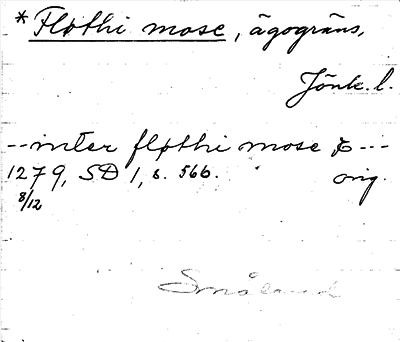 *Fløthi mose, ägogräns,
Jönk. l.
--inter fløthi mose &---
1279, SD 1, s. 566. orig.
8/12
Småland